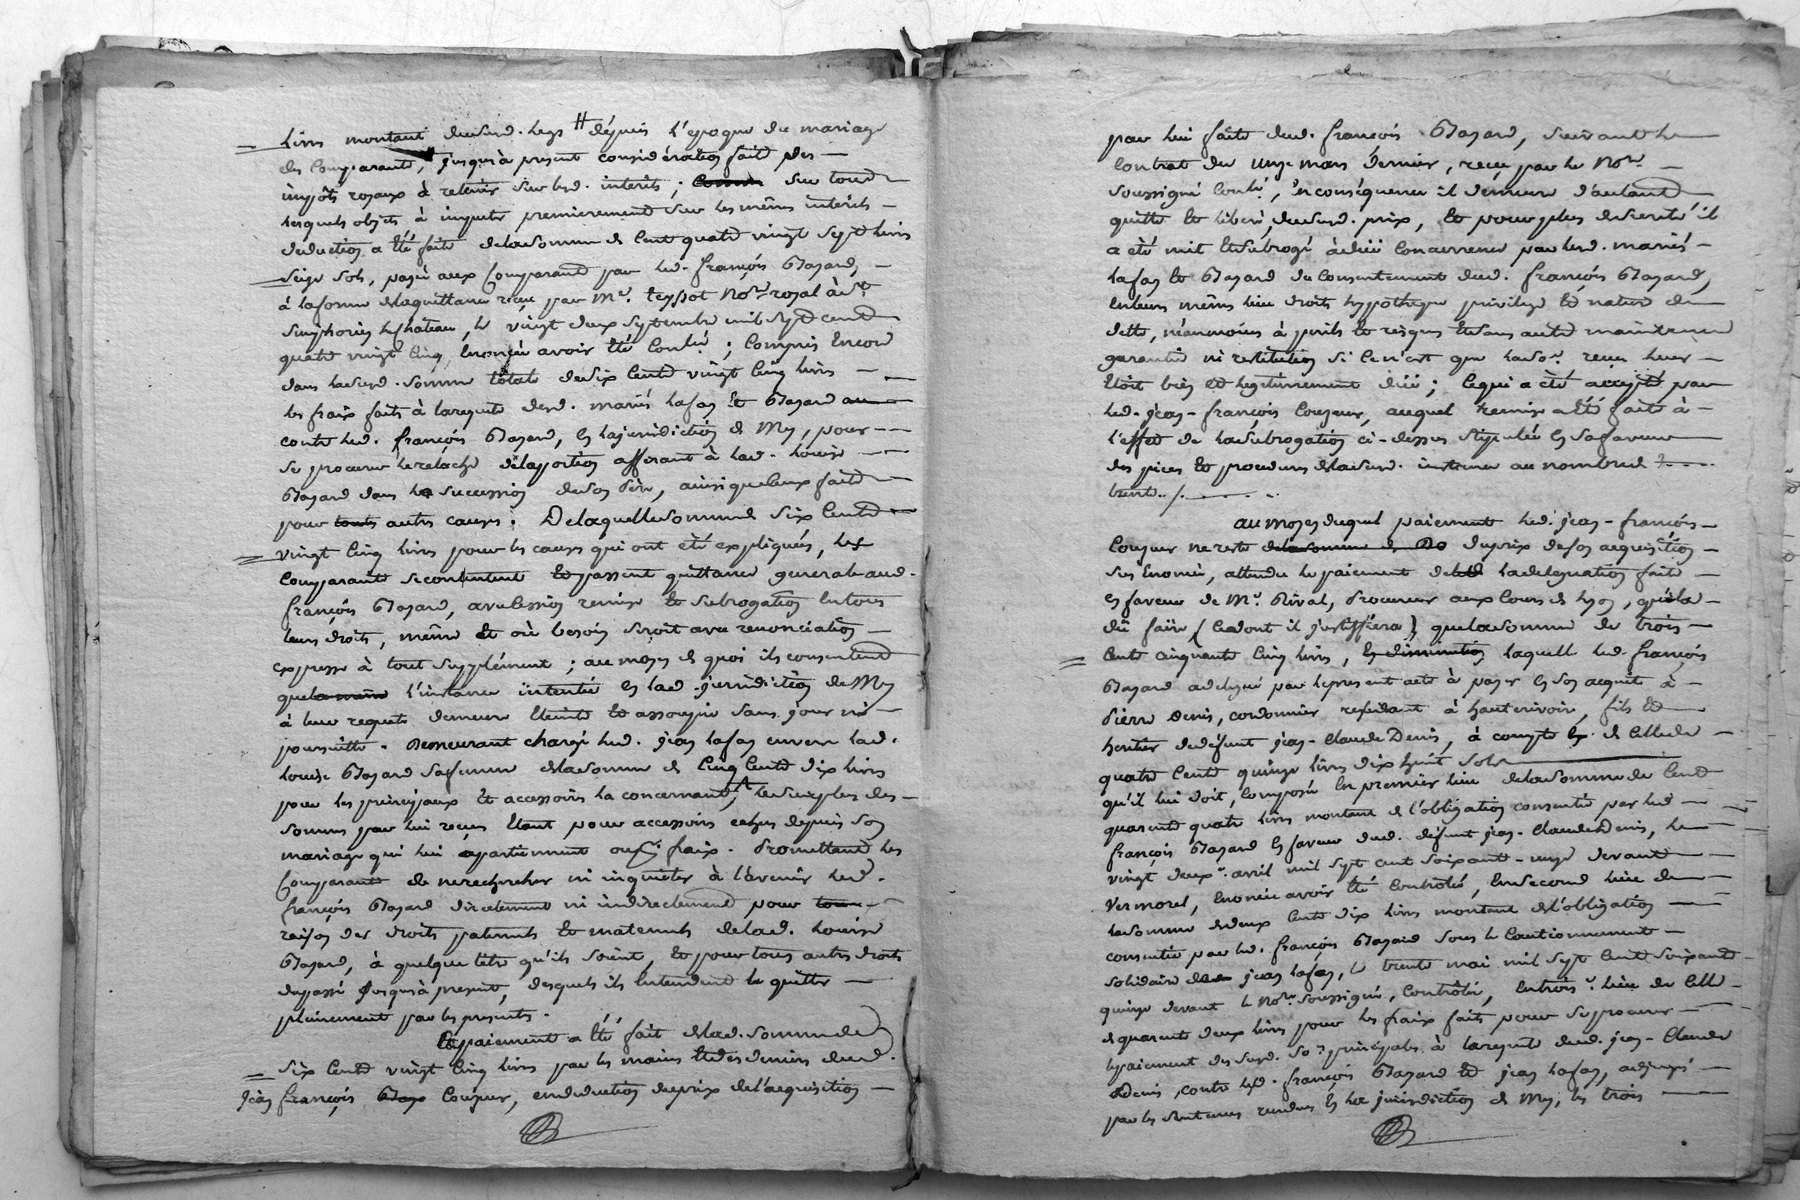 livres montant dudsusd. legs # dépuis l'epoque du mariage
des Comparants, jusqu'à present considération faite des
impôts royaux à retenir sur lesd. interêts ; sur tous
lesquels objets à imputer premierement sur les mêmes interêts
deduction a été faite delasomme de Cent quatre vingt sept livres
Seize sols, payée aux Comparants par led. françois Bazard,
à laforme delaquittance reçue par Me. teyssot Nore. royal à St.
Simphorien lechateau, le vingt deux septembre mil sept cents
quatre vingt Cinq, Enoncée avoir été Conlée ; Compris Encore
dans ladsusd. somme totale desix Cents vingt Cinq livres
les fraix faits à larequete desd. mariés lafay et Bazard
contre led. françois Bazard, En lajuridiction de Mey, pour
se procurer lerelache delaportion afferante à lad. Louise
Bazard dans la succession deson Père, ainsi queceux faits
pour autres causes. Delaquellesomme de Six Cents
vingt Cinq livres pour les causes qui ont été expliquées, les
Comparants secontentent et passent quittance generale aud.
françois Bazard, avec cession remise et subrogation Entous
leurs droits, même et où besoin seroit avec renonciation
expresse à tout supplément ; au moyen de quoi ils consentent
que l'instance intentée en lad. jurisdiction de Mey
à leur requete demeure Eteinte et assoupie sans jour ni
poursuitte. Demeurant chargé led. jean lafay envers lad.
Louise Bazard safemme delasomme de Cinq Cents dix livres
pour les principaux et accessoires la concernant, lesurplus des
sommes par lui reçues Etant pour accessoires echus depuis son
mariage qui lui apartiennent ou fraix. Promettants les
Comparants de nerechercher ni inquiéter à l'avenir led.
françois Bazard directement ni indirectement pour
raison des droits paternels et maternels delad. Louise
Bazard, à quelque titre qu'ils soient, et pour tous autres droits
dupassé jusqu'à present, desquels ils Entendent le quitter
pleinement par les presentes.
Le paiement a été fait delad. somme de
Six Cents vingt Cinq livres par les mains et des deniers dud.
jean françois Coujeur, endeduction duprix del'acquisition
par lui faite dud. françois Bazard, suivant le
Contrat du unze mars dernier, reçu par le Nore.
soussigné Conlé, En conséquence il demeure d'autant
quitte et libéré dudsusd. prix, et pour plus desureté il
a été mit et subrogé àdüe concurrence par lesd. mariés
lafay et Bazard du consentement dud. françois Bazard,
enleurs mêmes lieu droits hypotheque privilege et nature de
dette, néanmoins à perils et risques et sans autre maintenue
garantie ni restitution si Ce n'est que lasoe. reçue leur
étoit bien et legitimement düe ; Cequi a été accepté par
led. jean-françois Coujeur, auquel remise a été faite à
l'effet de lasubrogation ci-dessus stipulée En safaveur
des pieces et procedures deladsusd. instance au nombre de
trente./.
au moyen duquel paiement led. jean-françois
Coujeur ne reste duprix deson acquisition
sus Enoncée, attendu le paiement de ladelegation faite
En faveur de Mr. Rival, Procureur aux Cours de Lyon, qu'il a
dû faire (Cedont il justiffiera), que lasomme de trois
Cents cinquante Cinq livres, laquelle led. françois
Bazard adelegué par lepresent acte à payer En son acquit à
Pierre Denis, cordonnier residant à hauterivoire, fils et
heritier dedéfunt jean-Claude Denis, à compte de Cellede
quatre Cents quinze livres dix huit sols
qu'il lui doit, Composée En premier lieu delasomme de Cent
quarente quatre livres montant de l'obligation consentie par led.
françois Bazard En faveur dud. défunt jean-Claude Denis, le
vingt deuxe. avril mil sept cent soixante-unze devant
Vermorel, Enoncée avoir été Contrôlée, Ensecond lieu de
lasomme dedeux Cents dix livres montant del'obligation
consentie par led. françois Bazard sous le Cautionnement
solidaire de jean lafay, le trente mai mil sept Cent soixante
quinze devant le Nore. soussigné, Contrôlée, Entroise. lieu de Celle
de quarente deux livres pour les fraix faits pour seprocurer
lepaiement desdsusd. soes. principales à larequete dud. jean-Claude
Denis, contre lesd. françois Bazard et jean lafay, adjugés
par les Sentences rendues En la jurisdiction de Mey, les trois